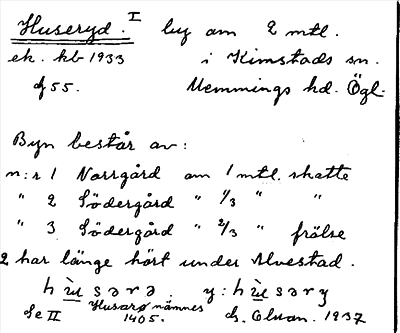 Huseryd. I by om 2 mtl.
ek. kb 1933 i Kimstads sn.
df 55. Memmings hd. Ögl.
Byn består av:
n:r 1 Norrgård om 1 mtl. skatte
" 2 Södergård " 1/3 " "
" 3 Södergård " 2/3 " frälse
2 har länge hört under Ulvestad.
hùsərə y: hùsəry
Se II Husarø nämnes 1405. G. Olson. 1937